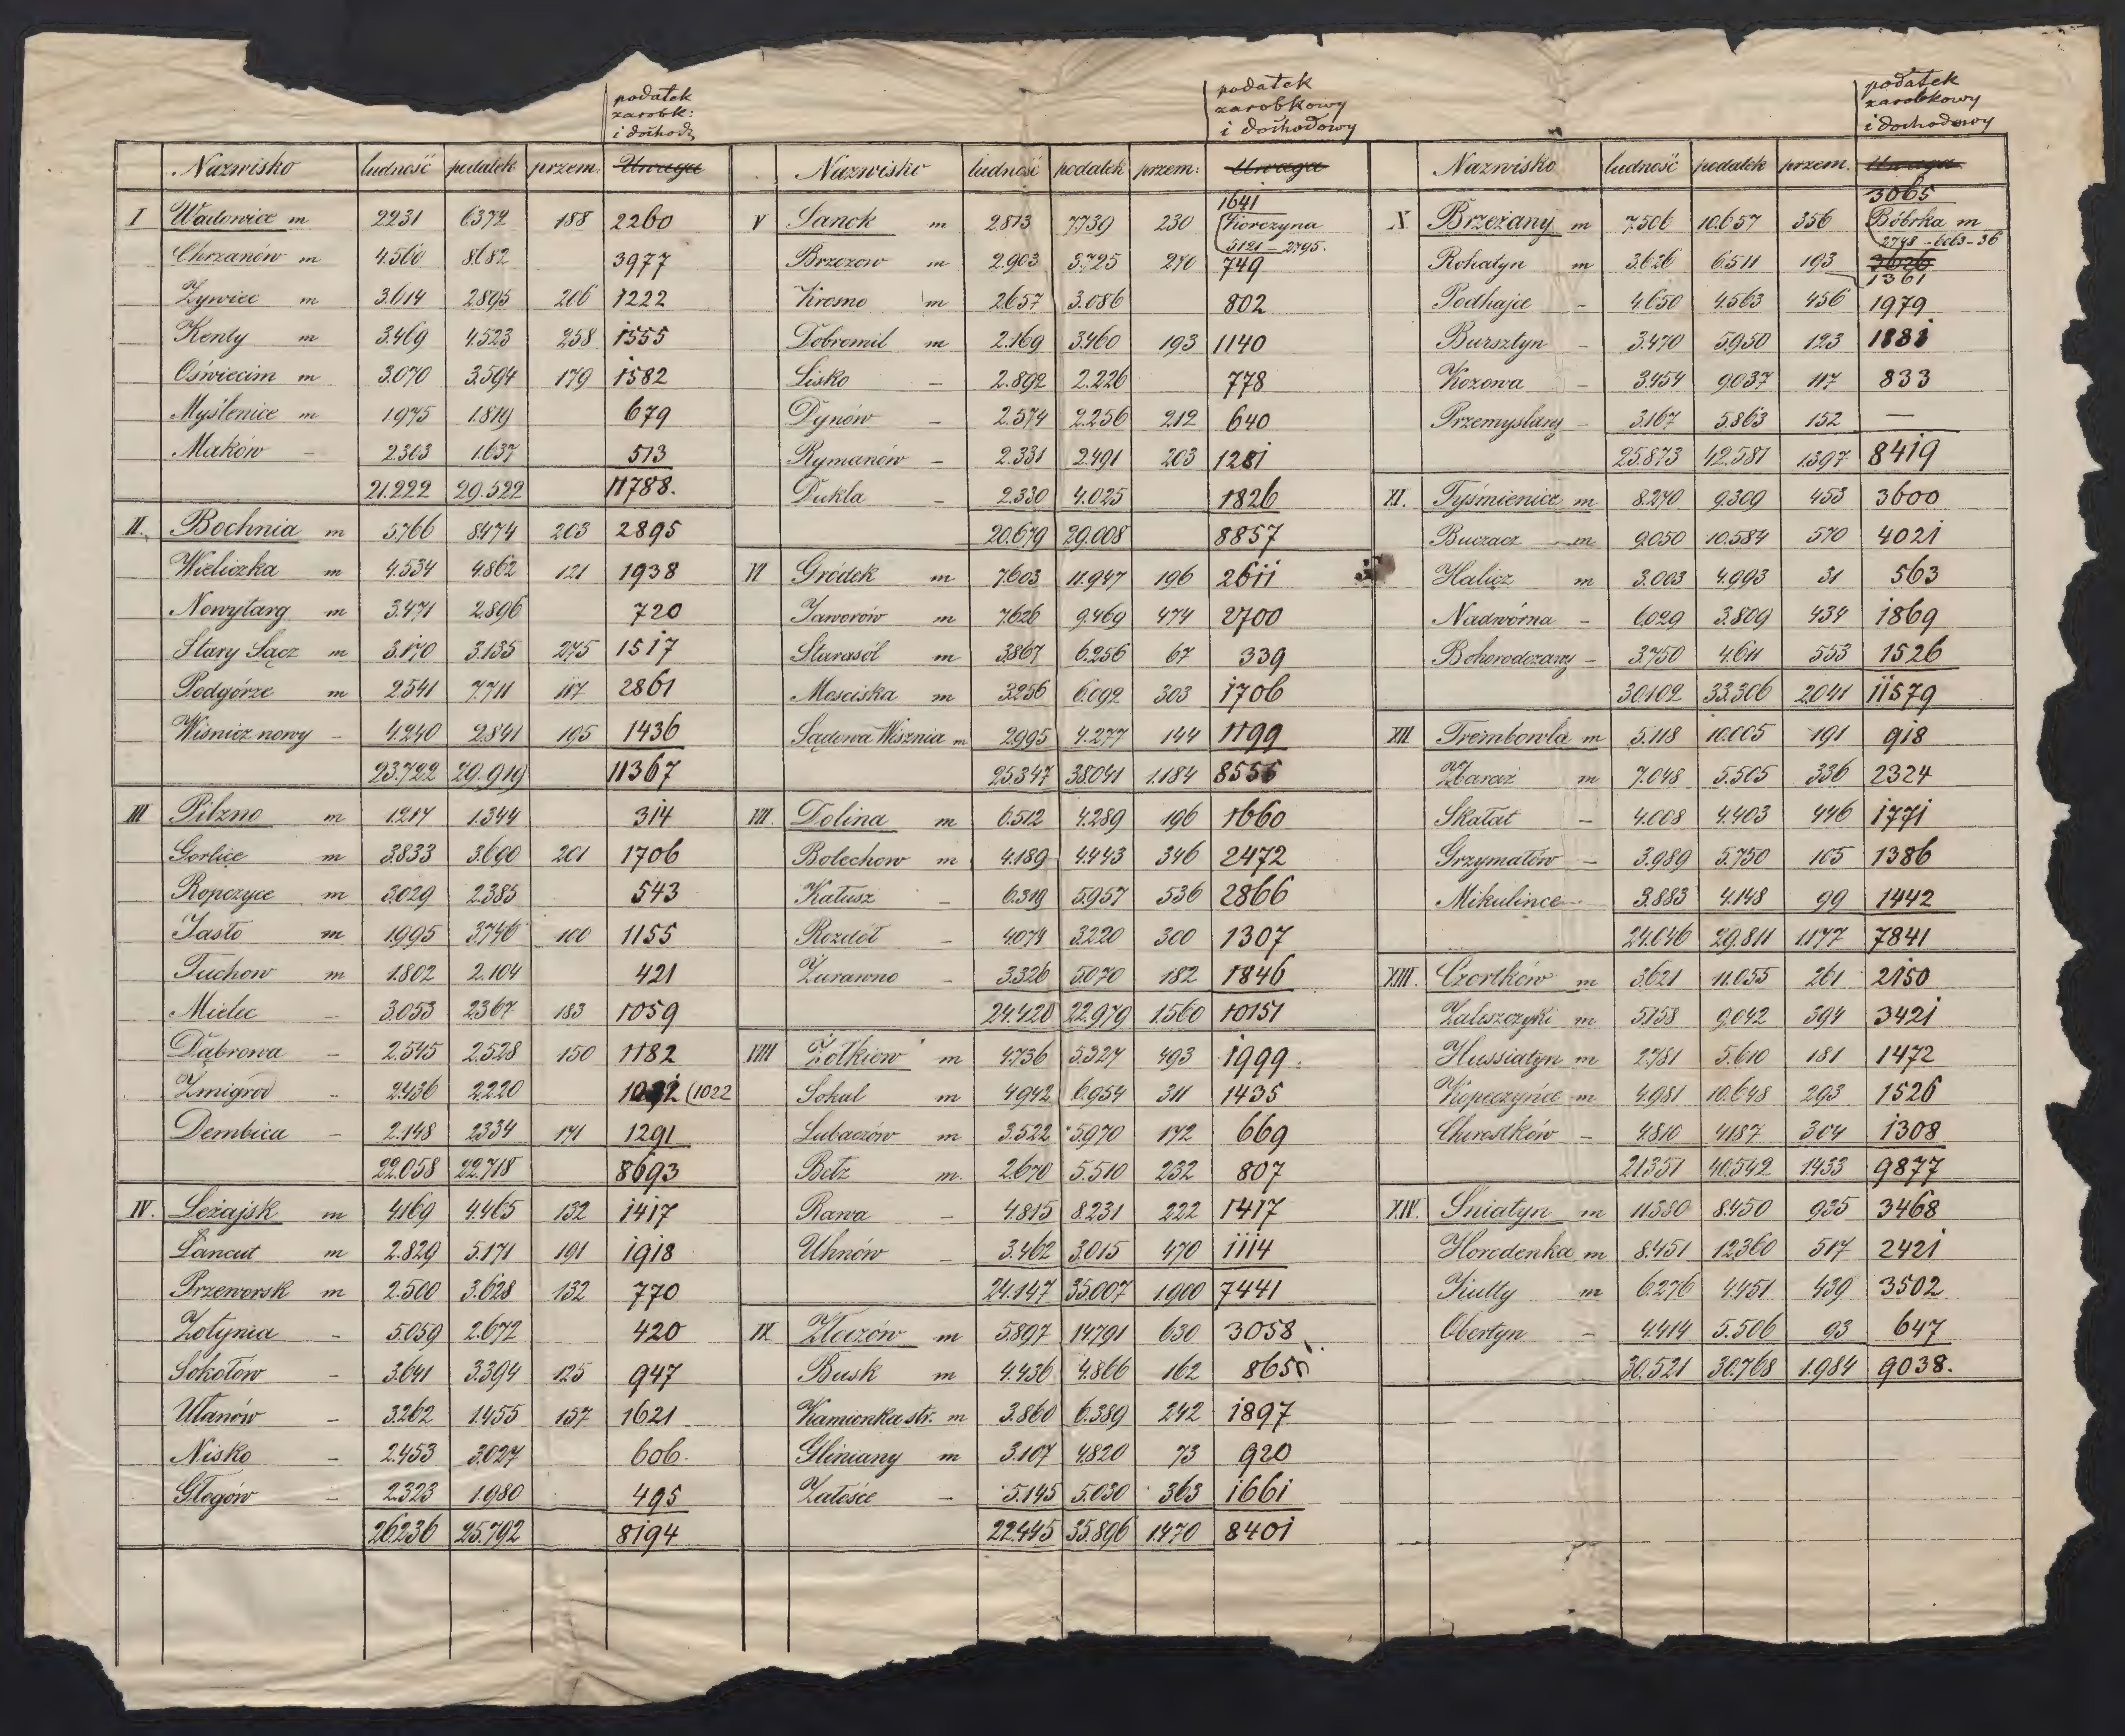 podatek
zarobk:
i dochod
Nazwisko ludność podatek przem: Uwaga
I Wadowice m 2231 6372 188 2260
Chrzanów m 4.560 8.682 3977
Żywiec m 3.614 2895 206 1222
Kenty m 3.469 4.523 258 1555
Oświecim m 3.070 3.594 179 1582
Myślenice m 1.975 1.819 679
Maków – 2.303 1.637 513
21.222 29.522 11788.
II. Bochnia m 5.766 8.474 203 2895
Wieliczka m 4.534 4.862 121 1938
Nowytarg m 3.471 2.896 720
Stary Sącz m 3.170 3.135 275 1517
Podgórze m 2541 7.711 117 2861
Wisnicz nowy – 4.240 2.841 195 1436
23.722 29.919 11367
III Pilzno m 1.217 1.344 314
Gorlice m 3.833 3.690 201 1706
Ropczyce m 3.029 2.385 543
Jasło m 1.995 3.746 100 1155
Tuchow m 1.802 2.104 421
Mielec – 3.053 2367 183 1059
Dąbrowa – 2.545 2.528 150 1182
Zmigrod – 2.436 2.220 (1022
Dembica – 2.148 2334 171 1291
22.058 22.718 8693
IV. Leżajsk m 4.169 4.465 132 1417
Łancut m 2.829 5.171 191 1918
Przeworsk m 2.500 3.628 132 770
Żołynia – 5.059 2.672 420
Sokołów – 3.641 3.394 125 947
Ulanów – 3.262 1.455 157 1621
Nisko – 2.453 3.027 606.
Głogów – 2.323 1.980 495
26.236 25.792 8194
podatek
zarobkowy
i dochodowy
Nazwisko ludność podatek przem: Uwaga
1641
V Sanok m 2.813 7.739 230 Korczyna
5121 – 2795.
Brzozow m 2.903 3.725 270 749
Krosno m 2.657 3.086 802
Dobromil m 2.169 3.460 193 1140
Lisko – 2.892 2.226 778
Dynów – 2.574 2.256 212 640
Rymanów – 2.331 2.491 203 1281
Dukla – 2.330 4.025 1826
20.679 29.008 8857
VI Gródek m 7.603 11.947 196 2611
Jaworów m 7.626 9.469 474 2700
Starasól m 3.867 6.256 67 339
Mosciska m 3.256 6.092 303 1706
Sądowa Wisznia m 2.995 4.277 144 1199
25.347 38.041 1.184 8555
VII. Dolina m 6.512 4.289 196 1660
Bolechow m 4.189 4.443 346 2472
Kałusz – 6.319 5.957 536 2866
Rozdół – 4.074 3.220 300 1307
Żurawno – 3.326 5.070 182 1846
24.420 22.979 1.560 10151
VIII Żołkiew m 4.736 5.327 493 1999.
Sokal m 4942 6.954 311 1435
Lubaczów m 3.522 5.970 172 669
Bełz m. 2.670 5.510 232 807
Rawa – 4.815 8.231 222 1417
Uhnów – 3.462 3.015 470 1114
24.147 35.007 1.900 7441
IX Złoczów m 5.897 14.791 630 3058
Busk m 4.436 4.866 162 865
Kamionka str. m 3.860 6.389 242 1897
Gliniany m 3.107 4.820 73 920
Załośce – 5.145 5.030 363 1661
22.445 35.896 1470 8401
podatek
zarobkowy
i dochodowy
Nazwisko ludność podatek przem. Uwaga
3065
X Brzeżany m 7.506 10.657 356 Bóbrka m
2748 – 6063 – 36
Rohatyn m 3.626 6.511 193 3626
1361
Podhajce – 4.650 4.563 456 1979
Bursztyn – 3.470 5.950 123 1881
Kozowa – 3.454 9.037 117 833
Przemyslany – 3.167 5.863 152 —
25.873 42.581 1.397 8419
XI. Tyśmienica m 8.270 9.309 453 3600
Buczacz m 9.050 10.584 570 4021
Halicz m 3.003 4.993 31 563
Nadwórna – 6.029 3.809 434 1869
Bohorodczany – 3.750 4.611 553 1526
30.102 33.306 2.041 11579
XII Trembowla m 5.118 10.005 191 918
Zbaraż m 7.048 5.505 336 2324
Skałat – 4.008 4.403 446 1771
Grzymałów – 3.989 5.750 105 1386
Mikulince – 3.883 4.148 99 1442
24.046 29.811 1.177 7841
XIII. Czortków m 3.621 11.055 261 2150
Zaleszczyki m 5.158 9.042 394 3421
Hussiatyn m 2.781 5.610 181 1472
Kopeczyńce m 4.981 10.648 293 1526
Chorostków – 4.810 4187 304 1308
21.351 40.542 1433 9877
XIV. Sniatyn m 11.380 8.450 935 3468
Horodenka m 8.451 12.360 517 2421
Kutty m 6.276 4.451 439 3502
Obertyn – 4.414 5.506 93 647
30.521 30.768 1.984 9038.